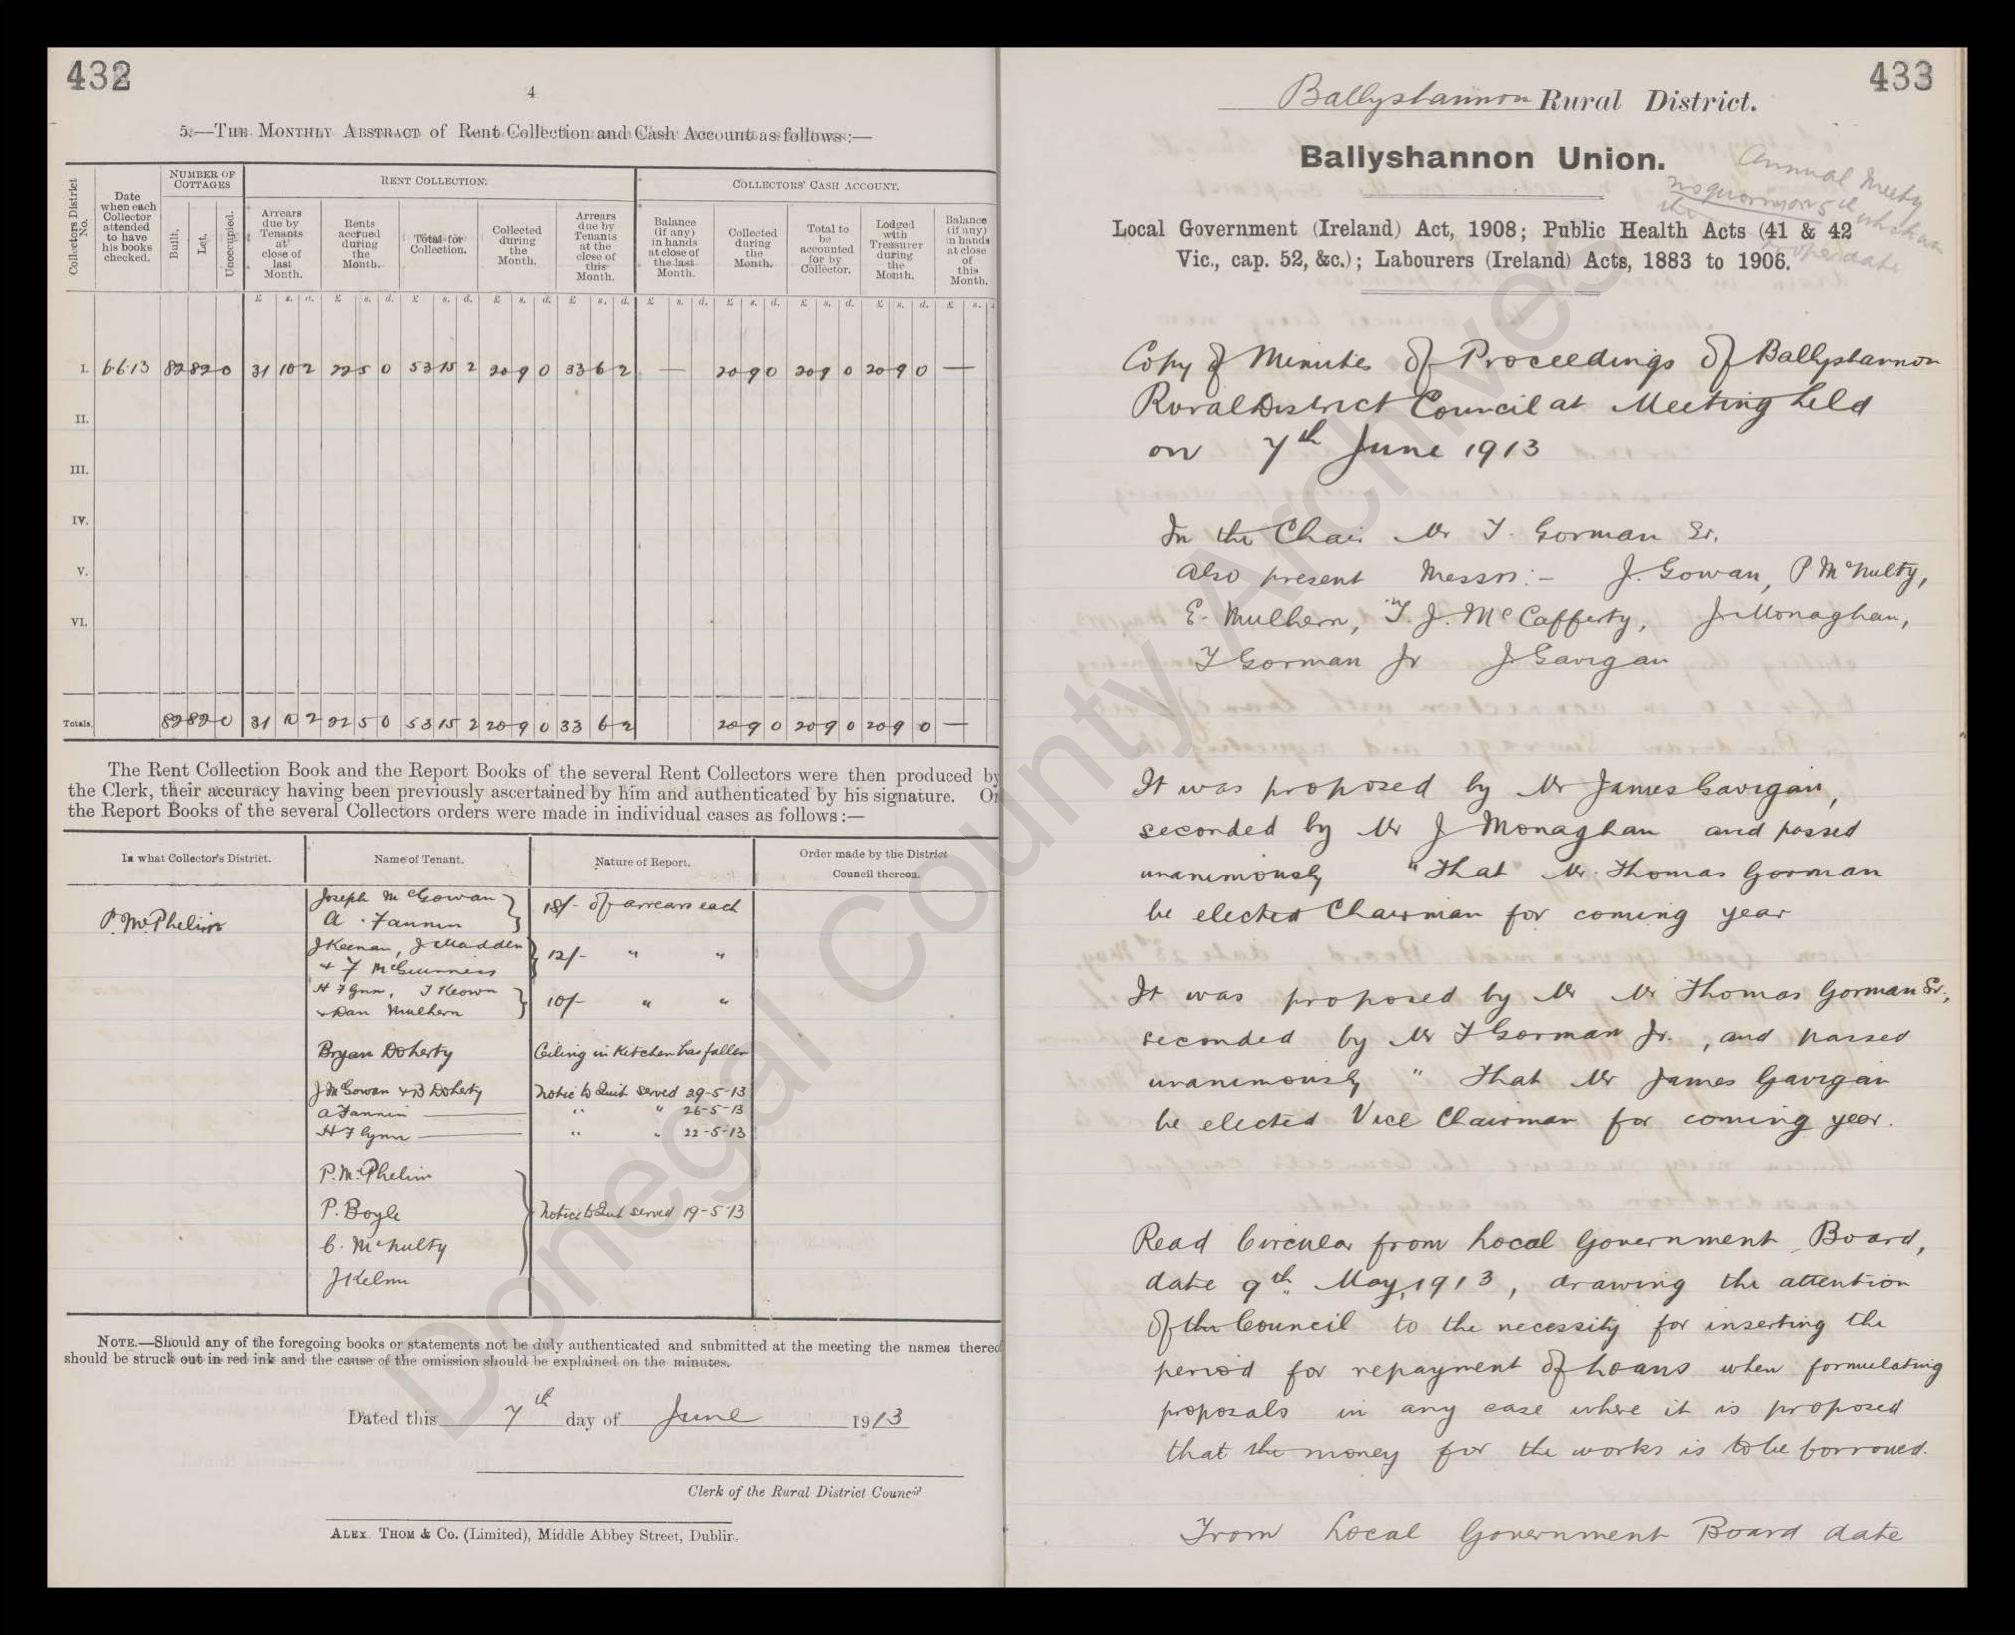 432
4
5.—The Monthly Abstract of Rent Collection and Cash Account as follows:—
Collectors District No.
Date when each Collector attended to have his books checked.
NUMBER OF COTTAGES
Built. Let. Unoccupied.
RENT COLLECTION.
Arrears due by Tenants at close of last Month.
Rents accrued during the Month.
Total for Collection.
Collected during the Month.
Arrears due by Tenants at the close of this Month.
COLLECTORS' CASH ACCOUNT.
Balance (if any) in hands at close of the last Month.
Collected during the Month.
Total to be accounted for by Collector.
Lodged with Treasurer during the Month.
Balance (if any) in hands at close of this Month.
£ s. d. £ s. d. £ s. d. £ s. d. £ s. d. £ s. d. £ s. d. £ s. d. £ s. d. £ s.
I. 6·6·13 82 82 0 31 10 2 22 5 0 53 15 2 20 9 0 33 6 2 — 20 9 0 20 9 0 20 9 0 —
II.
III.
IV.
V.
VI.
Totals. 82 82 0 31 10 2 22 5 0 53 15 2 20 9 0 33 6 2 20 9 0 20 9 0 20 9 0 —
The Rent Collection Book and the Report Books of the several Rent Collectors were then produced by
the Clerk, their accuracy having been previously ascertained by him and authenticated by his signature. On
the Report Books of the several Collectors orders were made in individual cases as follows:—
In what Collector's District. Name of Tenant. Nature of Report. Order made by the District Council thereon.
P. McPhelim Joseph McGowan
A. Fannin 18/- of arrears each
J Keenan, J Madden
+ F McGuinness 12/- " "
H Flynn, J Keown
+ Dan Mulhern 10/- " "
Bryan Doherty Ceiling in Kitchen has fallen
J McGowan + B Doherty Notice to Quit served 29-5-13
A Fannin — " " 26-5-13
H Flynn — " " 22-5-13
P. McPhelim
P. Boyle Notice to Quit served 19-5-13
C. McNulty
J Kelm
NOTE.—Should any of the foregoing books or statements not be duly authenticated and submitted at the meeting the names thereof
should be struck out in red ink and the cause of the omission should be explained on the minutes.
Dated this 7th day of June 1913
Clerk of the Rural District Council
Alex. Thom & Co. (Limited), Middle Abbey Street, Dublin.
433
Ballyshannon Rural District.
Ballyshannon Union.
Annual Meety
no quorum on 5th
proper date
Local Government (Ireland) Act, 1908; Public Health Acts (41 & 42
Vic., cap. 52, &c.); Labourers (Ireland) Acts, 1883 to 1906.
Copy of Minutes of Proceedings of Ballyshannon
Rural District Council at Meeting held
on 7th June 1913
In the Chair Mr T. Gorman Sr.
Also present Messrs:- J. Gowan, P McNulty,
E. Mulhern, T. J. McCafferty, J Monaghan,
T Gorman Jr J Gavigan
It was proposed by Mr James Gavigan,
seconded by Mr J Monaghan and passed
unanimously "That Mr. Thomas Gorman
be elected Chairman for coming year
It was proposed by Mr Mr Thomas Gorman Sr.,
seconded by Mr T Gorman Jr., and passed
unanimously " That Mr James Gavigan
be elected Vice Chairman for coming year.
Read Circular from Local Government Board,
date 9th May, 1913, drawing the attention
of the Council to the necessity for inserting the
period for repayment of Loans when formulating
proposals in any case where it is proposed
that the money for the works is to be borrowed.
From Local Government Board date
Donegal County Archives